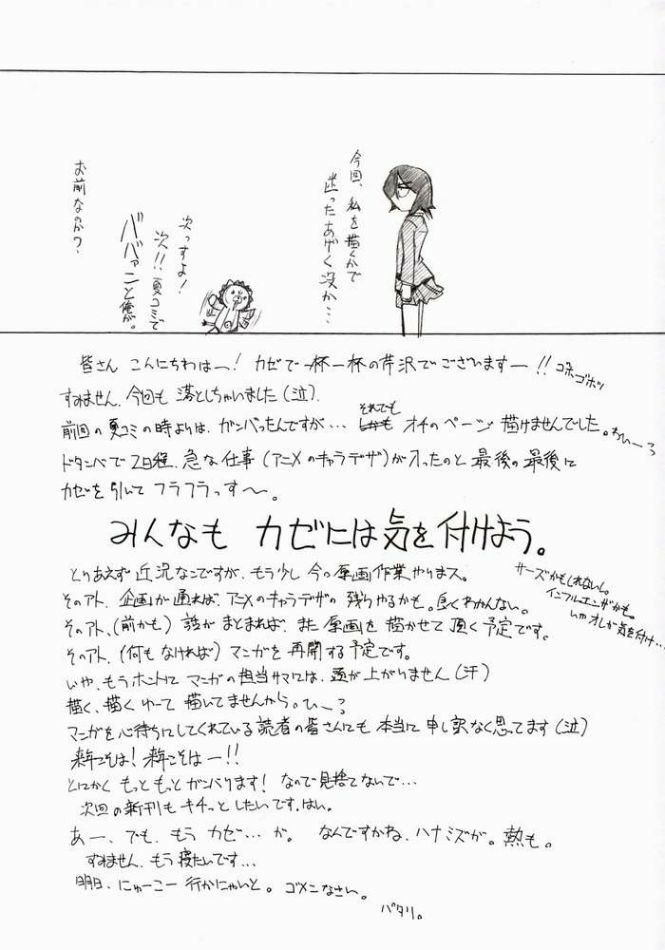 今回、私を描くかで
迷ったあげく没か…
次っすよ！
次!!夏コミで
ババァーンと俺が。
お前なのか？
皆さん こんにちわはー！ カゼで一杯一杯の芹沢でございますー!!
ゴホゴホッ
すみません、今回も落としちゃいました（泣）
前回の夏コミの時よりは、ガンバったんですが… それでも オチのページ描けませんでした。
ドタンバで2日程、急な仕事（アニメのキャラデザ）が入ったのと最後の最後に
カゼを引いて フラフラっす〜。
みんなも カゼには気を付けよう。
サーズかもしれないし。
インフルエンザかも。
いや オレが気を付け…
とりあえず近況なこですが、もう少し今の原画作業やります。
そのアト、企画が通れば、アニメのキャラデザの残りやるかも。良くわかんない。
そのアト、（前かも）話がまとまれば、また原画を描かせて頂く予定です。
そのアト、（何もなければ）マンガを再開する予定です。
いや、もうホントに マンガの担当サマには、頭が上がりません（汗）
描く、描くゆーて 描いてませんから。ひー？
マンガを心待ちにしてくれている読者の皆さんにも本当に申し訳なく思ってます（泣）
来年こそは！来年こそはー!!
とにかく もっともっとガンバります！ なので見捨てないで…
次回の新刊も キチッとしたいです、はい。
あー、でも、もう カゼ…か。 なんですかね、ハナミズが。熱も。
すみません、もう寝たいです…
明日、にゅーこー 行かにゃいと。 ゴメンなさい。
パタリ。